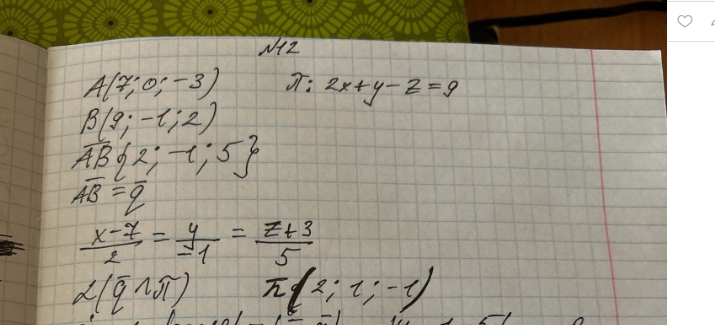 №12
A(7; 0; -3) π: 2x+y-z=9
B(9; -1; 2)
AB{2; -1; 5}
AB = q
x-7/2 = y/-1 = z+3/5
∠(q ∧ π) n(2; 1; -1)